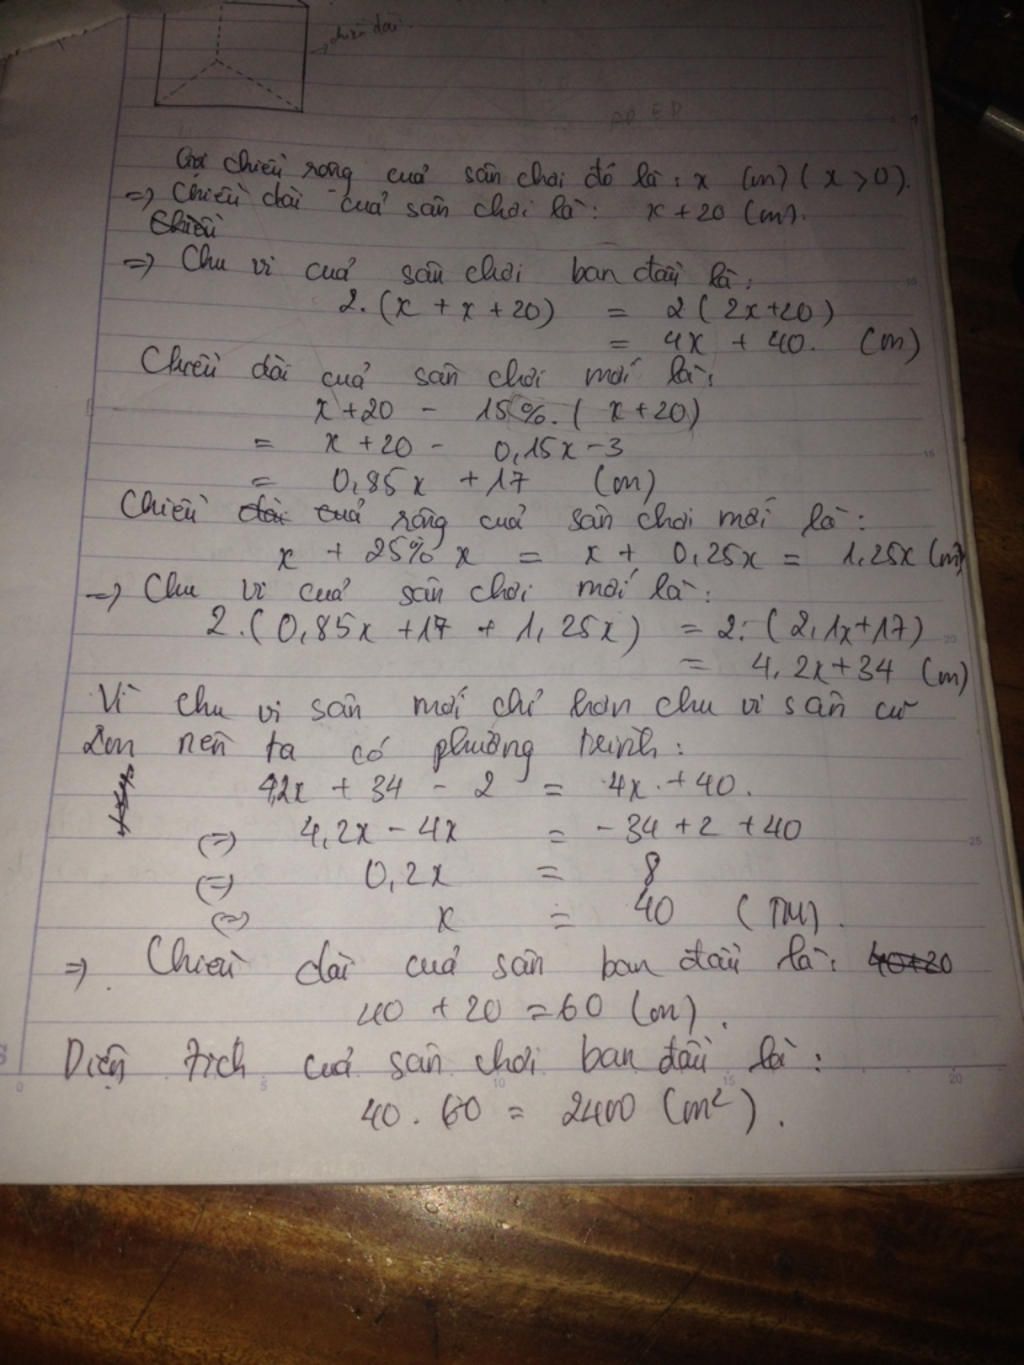 chiều dài
Gọi chiều rộng của sân chơi đó là: x (m) (x > 0).
=> Chiều dài của sân chơi là: x + 20 (m).
Chiều
=> Chu vi của sân chơi ban đầu là:
2.(x + x + 20) = 2(2x+20)
= 4x + 40. (m)
Chiều dài của sân chơi mới là:
x+20 - 15%.(x+20)
= x+20 - 0,15x-3
= 0,85x +17 (m)
Chiều dài của rộng của sân chơi mới là:
x + 25% x = x + 0,25x = 1,25x (m)
=> Chu vi của sân chơi mới là:
2.(0,85x +17 + 1,25x) = 2.(2,1x+17)
= 4,2x+34 (m)
Vì chu vi sân mới chỉ hơn chu vi sân cũ
2m nên ta có phương trình:
4,2x + 34 - 2 = 4x + 40.
(=) 4,2x - 4x = -34 +2 +40
(=) 0,2x = 8
(=) x = 40 (TM).
=> Chiều dài của sân ban đầu là: 40+20
40 + 20 = 60 (m).
Diện tích của sân chơi ban đầu là:
40 . 60 = 2400 (m²).